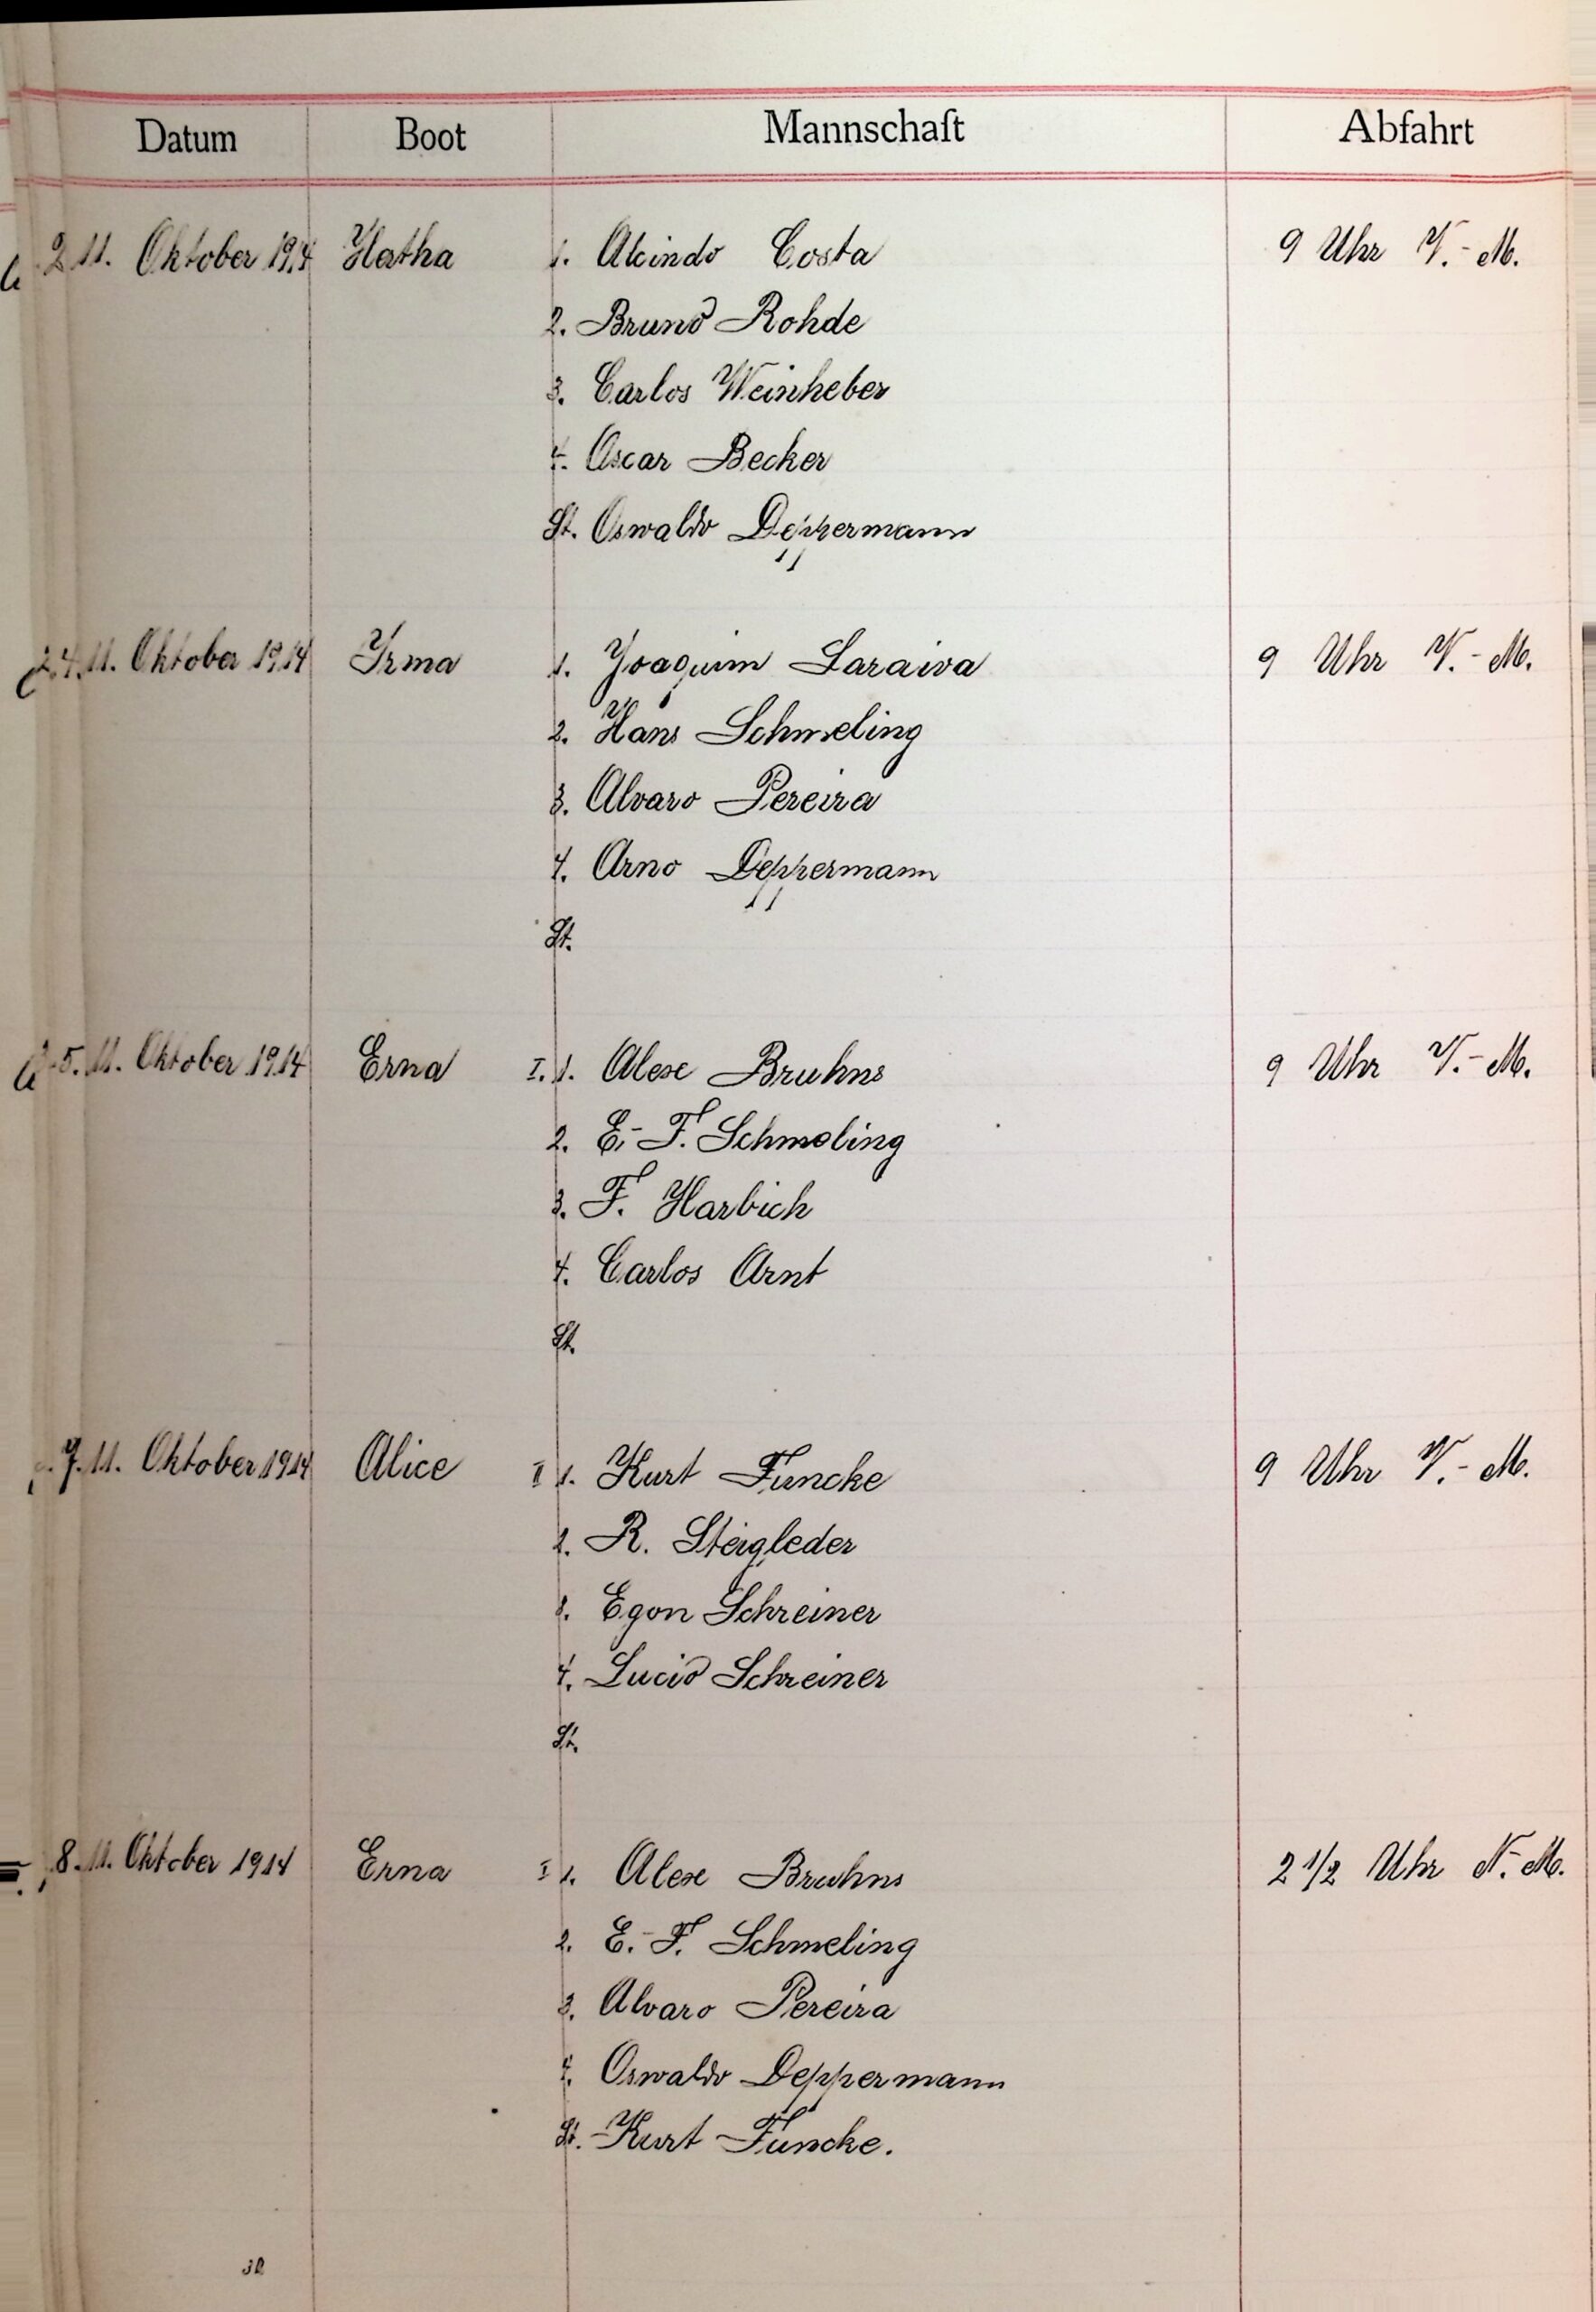 Datum Boot Mannschaft Abfahrt
2 11. Oktober 1914 Hertha 1. Alcindo Costa 9 Uhr V.-M.
2. Bruno Rohde
3. Carlos Weinheber
4. Oscar Becker
St. Oswaldo Deppermann
4. 11. Oktober 1914 Irma 1. Joaquim Saraiva 9 Uhr V.-M.
2. Hans Schmeling
3. Alvaro Pereira
4. Arno Deppermann
St.
5. 11. Oktober 1914 Erna I. 1. Alex Bruhns 9 Uhr V.-M.
2. E.-F. Schmeling
3. F. Harbich
4. Carlos Arnt
St.
7. 11. Oktober 1914 Alice I 1. Kurt Funcke 9 Uhr V.-M.
2. R. Steigleder
3. Egon Schreiner
4. Lucio Schreiner
St.
8. 11. Oktober 1914 Erna I 1. Alex Bruhns 2 1/2 Uhr N.-M.
2. E.-F. Schmeling
3. Alvaro Pereira
4. Oswaldo Deppermann
St. Kurt Funcke.